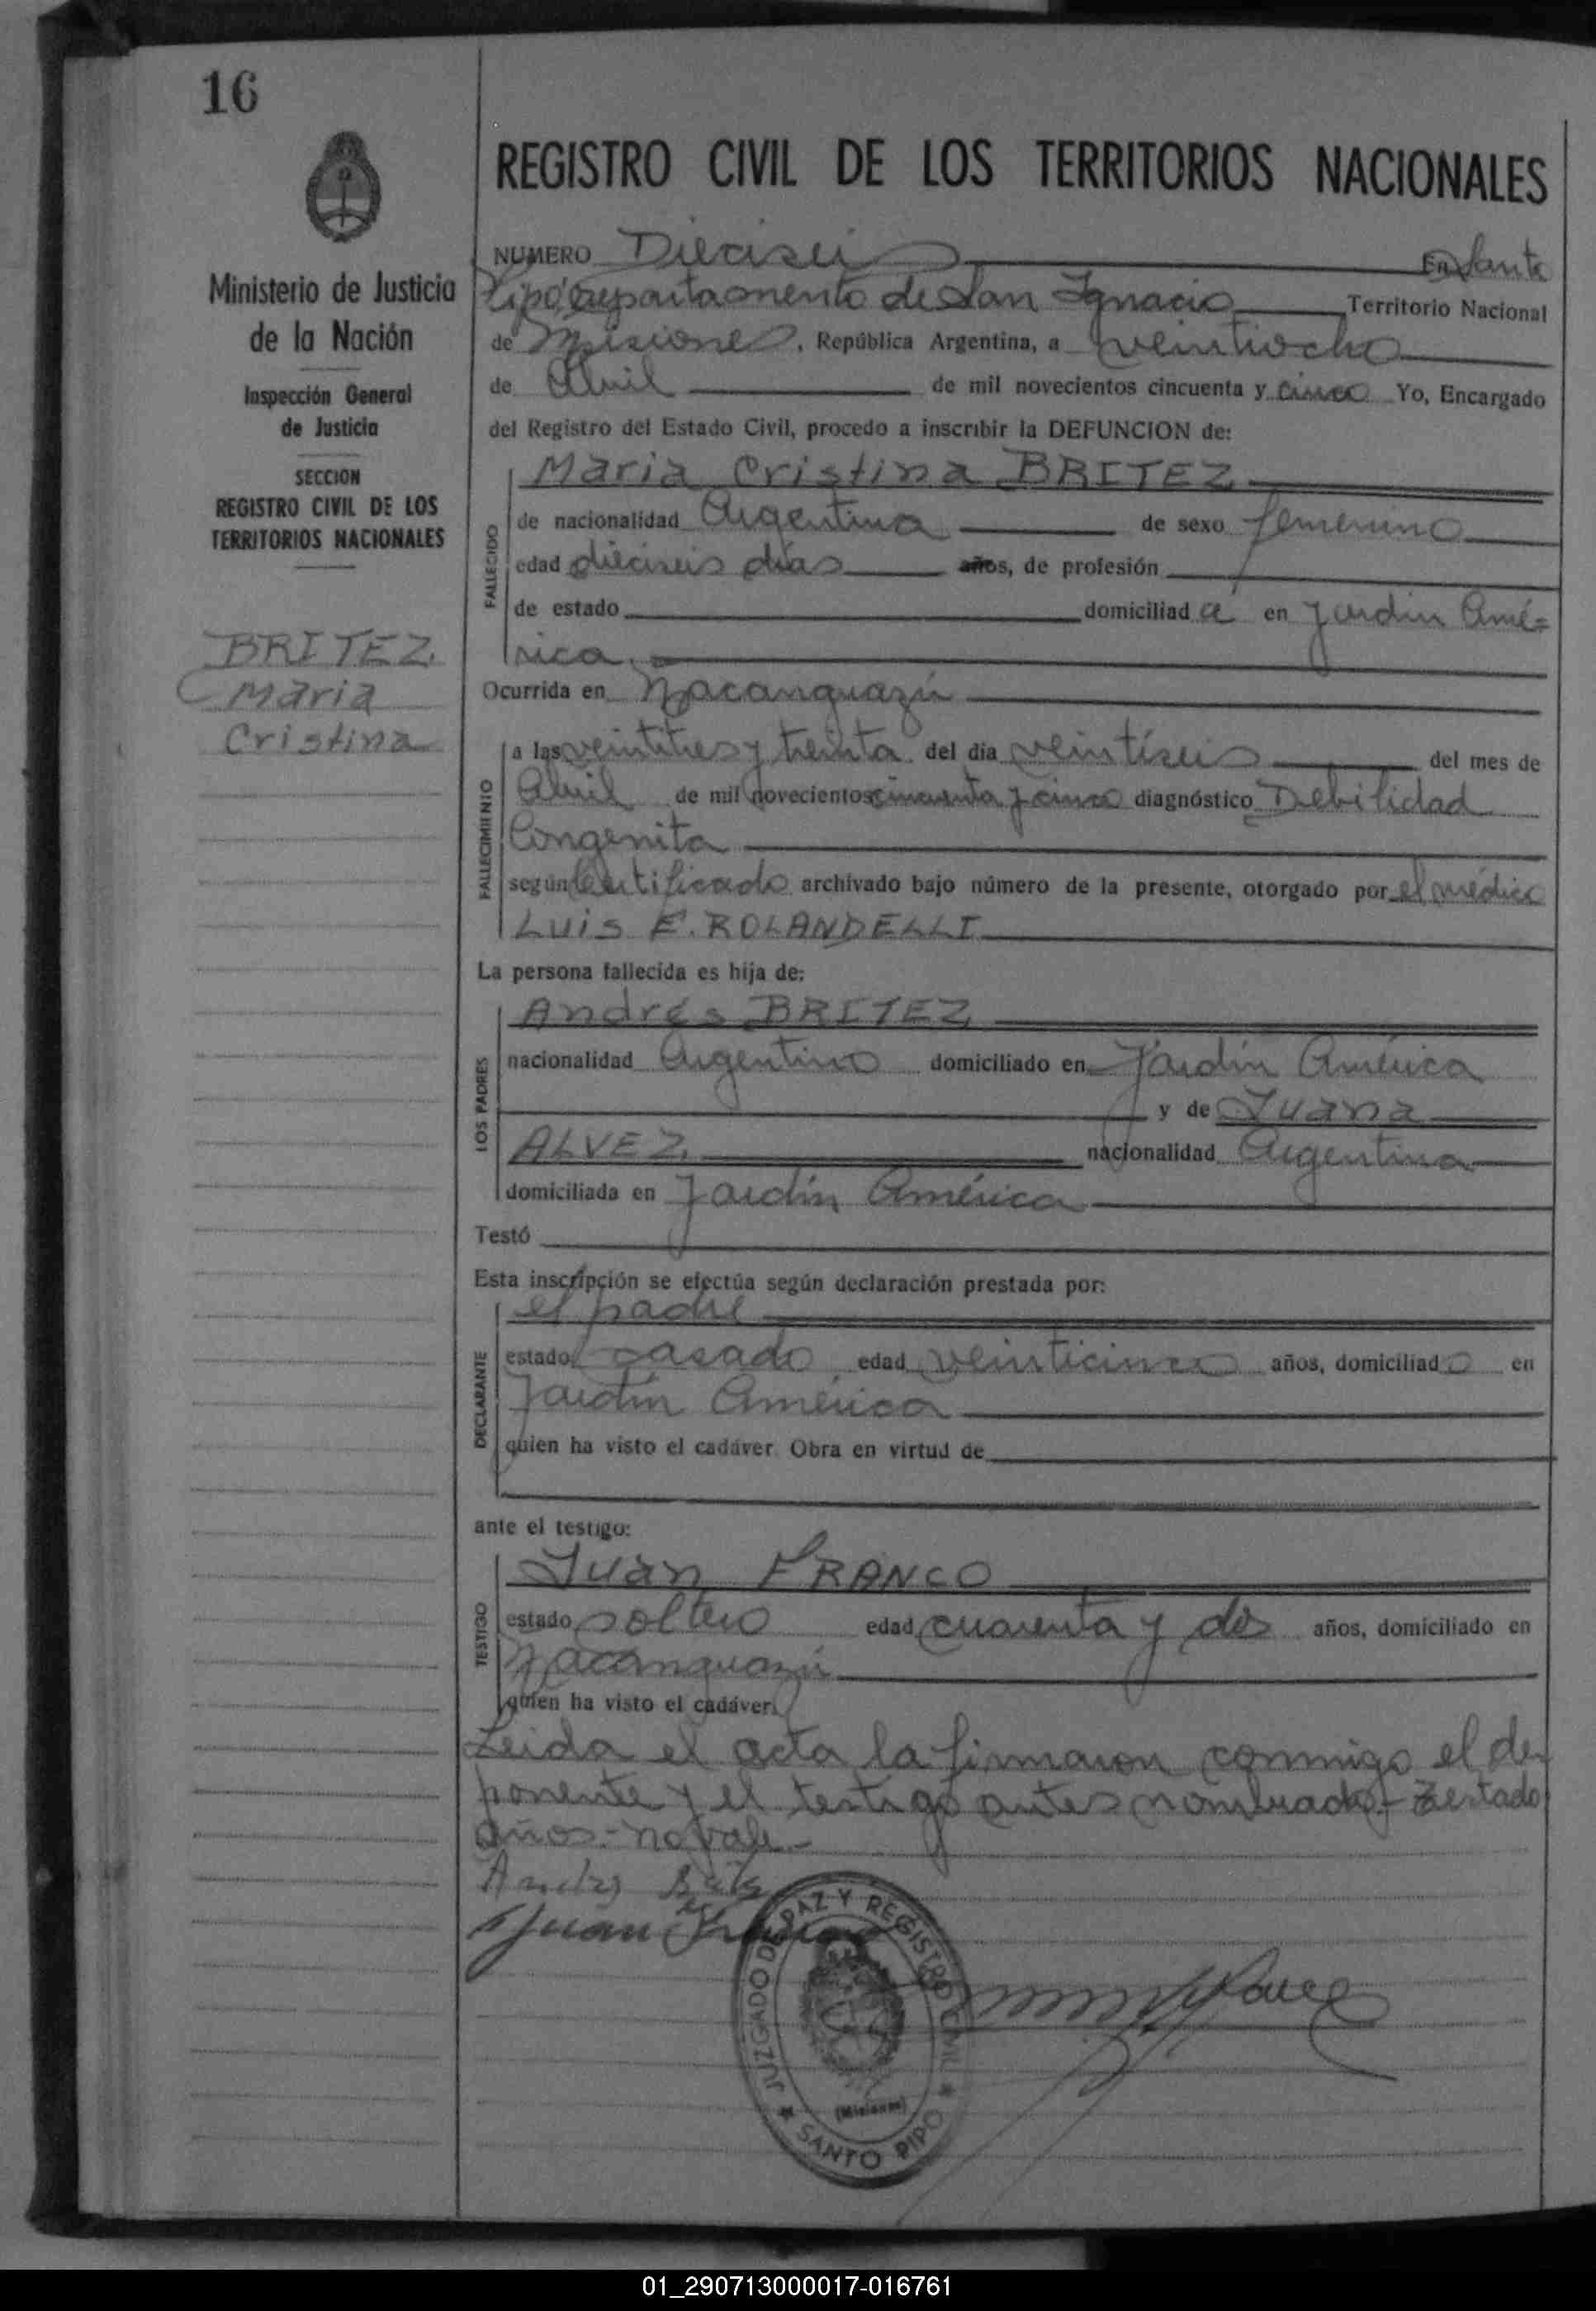 16
Ministerio de Justicia
de la Nación
Inspección General
de Justicia
SECCION
REGISTRO CIVIL DE LOS
TERRITORIOS NACIONALES
BRITEZ
Maria
Cristina
REGISTRO CIVIL DE LOS TERRITORIOS NACIONALES
NUMERO Dieciseis En Santo
Pipó departamento de San Ignacio Territorio Nacional
de Misiones, República Argentina, a veintiocho
de Abril de mil novecientos cincuenta y cinco Yo, Encargado
del Registro del Estado Civil, procedo a inscribir la DEFUNCION de:
FALLECIDO
Maria Cristina BRITEZ
de nacionalidad Argentina de sexo femenino
edad dieciseis días años, de profesión
de estado domiciliada en Jardín Amé=
rica.
Ocurrida en Ñacanguazú
FALLECIMIENTO
a las veintitres y treinta del día veintiseis del mes de
Abril de mil novecientos cincuenta y cinco diagnóstico Debilidad
Congenita
según Certificado archivado bajo número de la presente, otorgado por el médico
Luis E. ROLANDELLI
La persona fallecida es hija de:
LOS PADRES
Andrés BRITEZ
nacionalidad Argentino domiciliado en Jardín América
y de Juana
ALVEZ nacionalidad Argentina
domiciliada en Jardín América
Testó
Esta inscripción se efectúa según declaración prestada por:
DECLARANTE
el padre
estado casado edad veinticinco años, domiciliado en
Jardín América
quien ha visto el cadáver. Obra en virtud de
ante el testigo:
TESTIGO
Juan FRANCO
estado soltero edad cuarenta y dos años, domiciliado en
Ñacanguazú
quien ha visto el cadáver.
Leida el acta la firmaron conmigo el de-
ponente y el testigo antes nombrado.- Testado
años.- no vale.-
Andres
Juan Franco
JUZGADO DE PAZ Y REGISTRO CIVIL
(Misiones)
SANTO PIPO
01_290713000017-016761